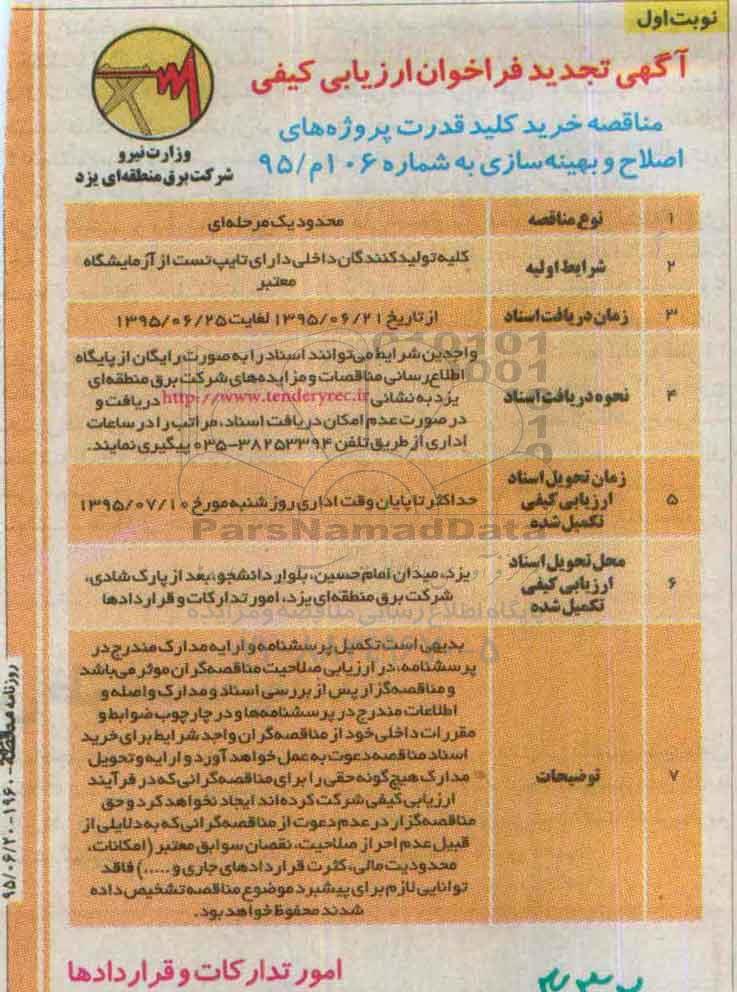 نوبت اول
آگهی تجدید فراخوان ارزیابی کیفی
مناقصه خرید کلید قدرت پروژه‌های
اصلاح و بهینه‌سازی به شماره ۱۰۶م/۹۵
وزارت نیرو
شرکت برق منطقه‌ای یزد
۱ نوع مناقصه محدود یک مرحله‌ای
۲ شرایط اولیه کلیه تولیدکنندگان داخلی دارای تایپ تست از آزمایشگاه
معتبر
۳ زمان دریافت اسناد از تاریخ ۱۳۹۵/۰۶/۲۱ لغایت ۱۳۹۵/۰۶/۲۵
۴ نحوه دریافت اسناد
واجدین شرایط می‌توانند اسناد را به صورت رایگان از پایگاه
اطلاع‌رسانی مناقصات و مزایده‌های شرکت برق منطقه‌ای
یزد به نشانی http://www.tenderyrec.ir دریافت و
در صورت عدم امکان دریافت اسناد، مراتب را در ساعات
اداری از طریق تلفن ۳۸۲۵۳۳۹۴-۰۳۵ پیگیری نمایند.
۵
زمان تحویل اسناد
ارزیابی کیفی
تکمیل شده
حداکثر تا پایان وقت اداری روز شنبه مورخ ۱۳۹۵/۰۷/۱۰
ParsNamadData
۶
محل تحویل اسناد
ارزیابی کیفی
تکمیل شده
یزد، میدان امام حسین، بلوار دانشجو، بعد از پارک شادی،
شرکت برق منطقه‌ای یزد، امور تدارکات و قراردادها
پایگاه اطلاع رسانی مناقصه و مزایده
۷ توضیحات
بدیهی است تکمیل پرسشنامه و ارایه مدارک مندرج در
پرسشنامه، در ارزیابی صلاحیت مناقصه‌گران موثر می‌باشد
و مناقصه‌گزار پس از بررسی اسناد و مدارک واصله و
اطلاعات مندرج در پرسشنامه‌ها و در چارچوب ضوابط و
مقررات داخلی خود از مناقصه‌گران واجد شرایط برای خرید
اسناد مناقصه دعوت به عمل خواهد آورد و ارایه و تحویل
مدارک هیچ‌گونه حقی را برای مناقصه‌گرانی که در فرآیند
ارزیابی کیفی شرکت کرده‌اند ایجاد نخواهد کرد و حق
مناقصه‌گزار در عدم دعوت از مناقصه‌گرانی که به دلایلی از
قبیل عدم احراز صلاحیت، نقصان سوابق معتبر (امکانات،
محدودیت مالی، کثرت قراردادهای جاری و .....) فاقد
توانایی لازم برای پیشبرد موضوع مناقصه تشخیص داده
شدند محفوظ خواهد بود.
امور تدارکات و قراردادها
روزنامه مناقصه - ۱۹۶۰ - ۹۵/۰۶/۲۰